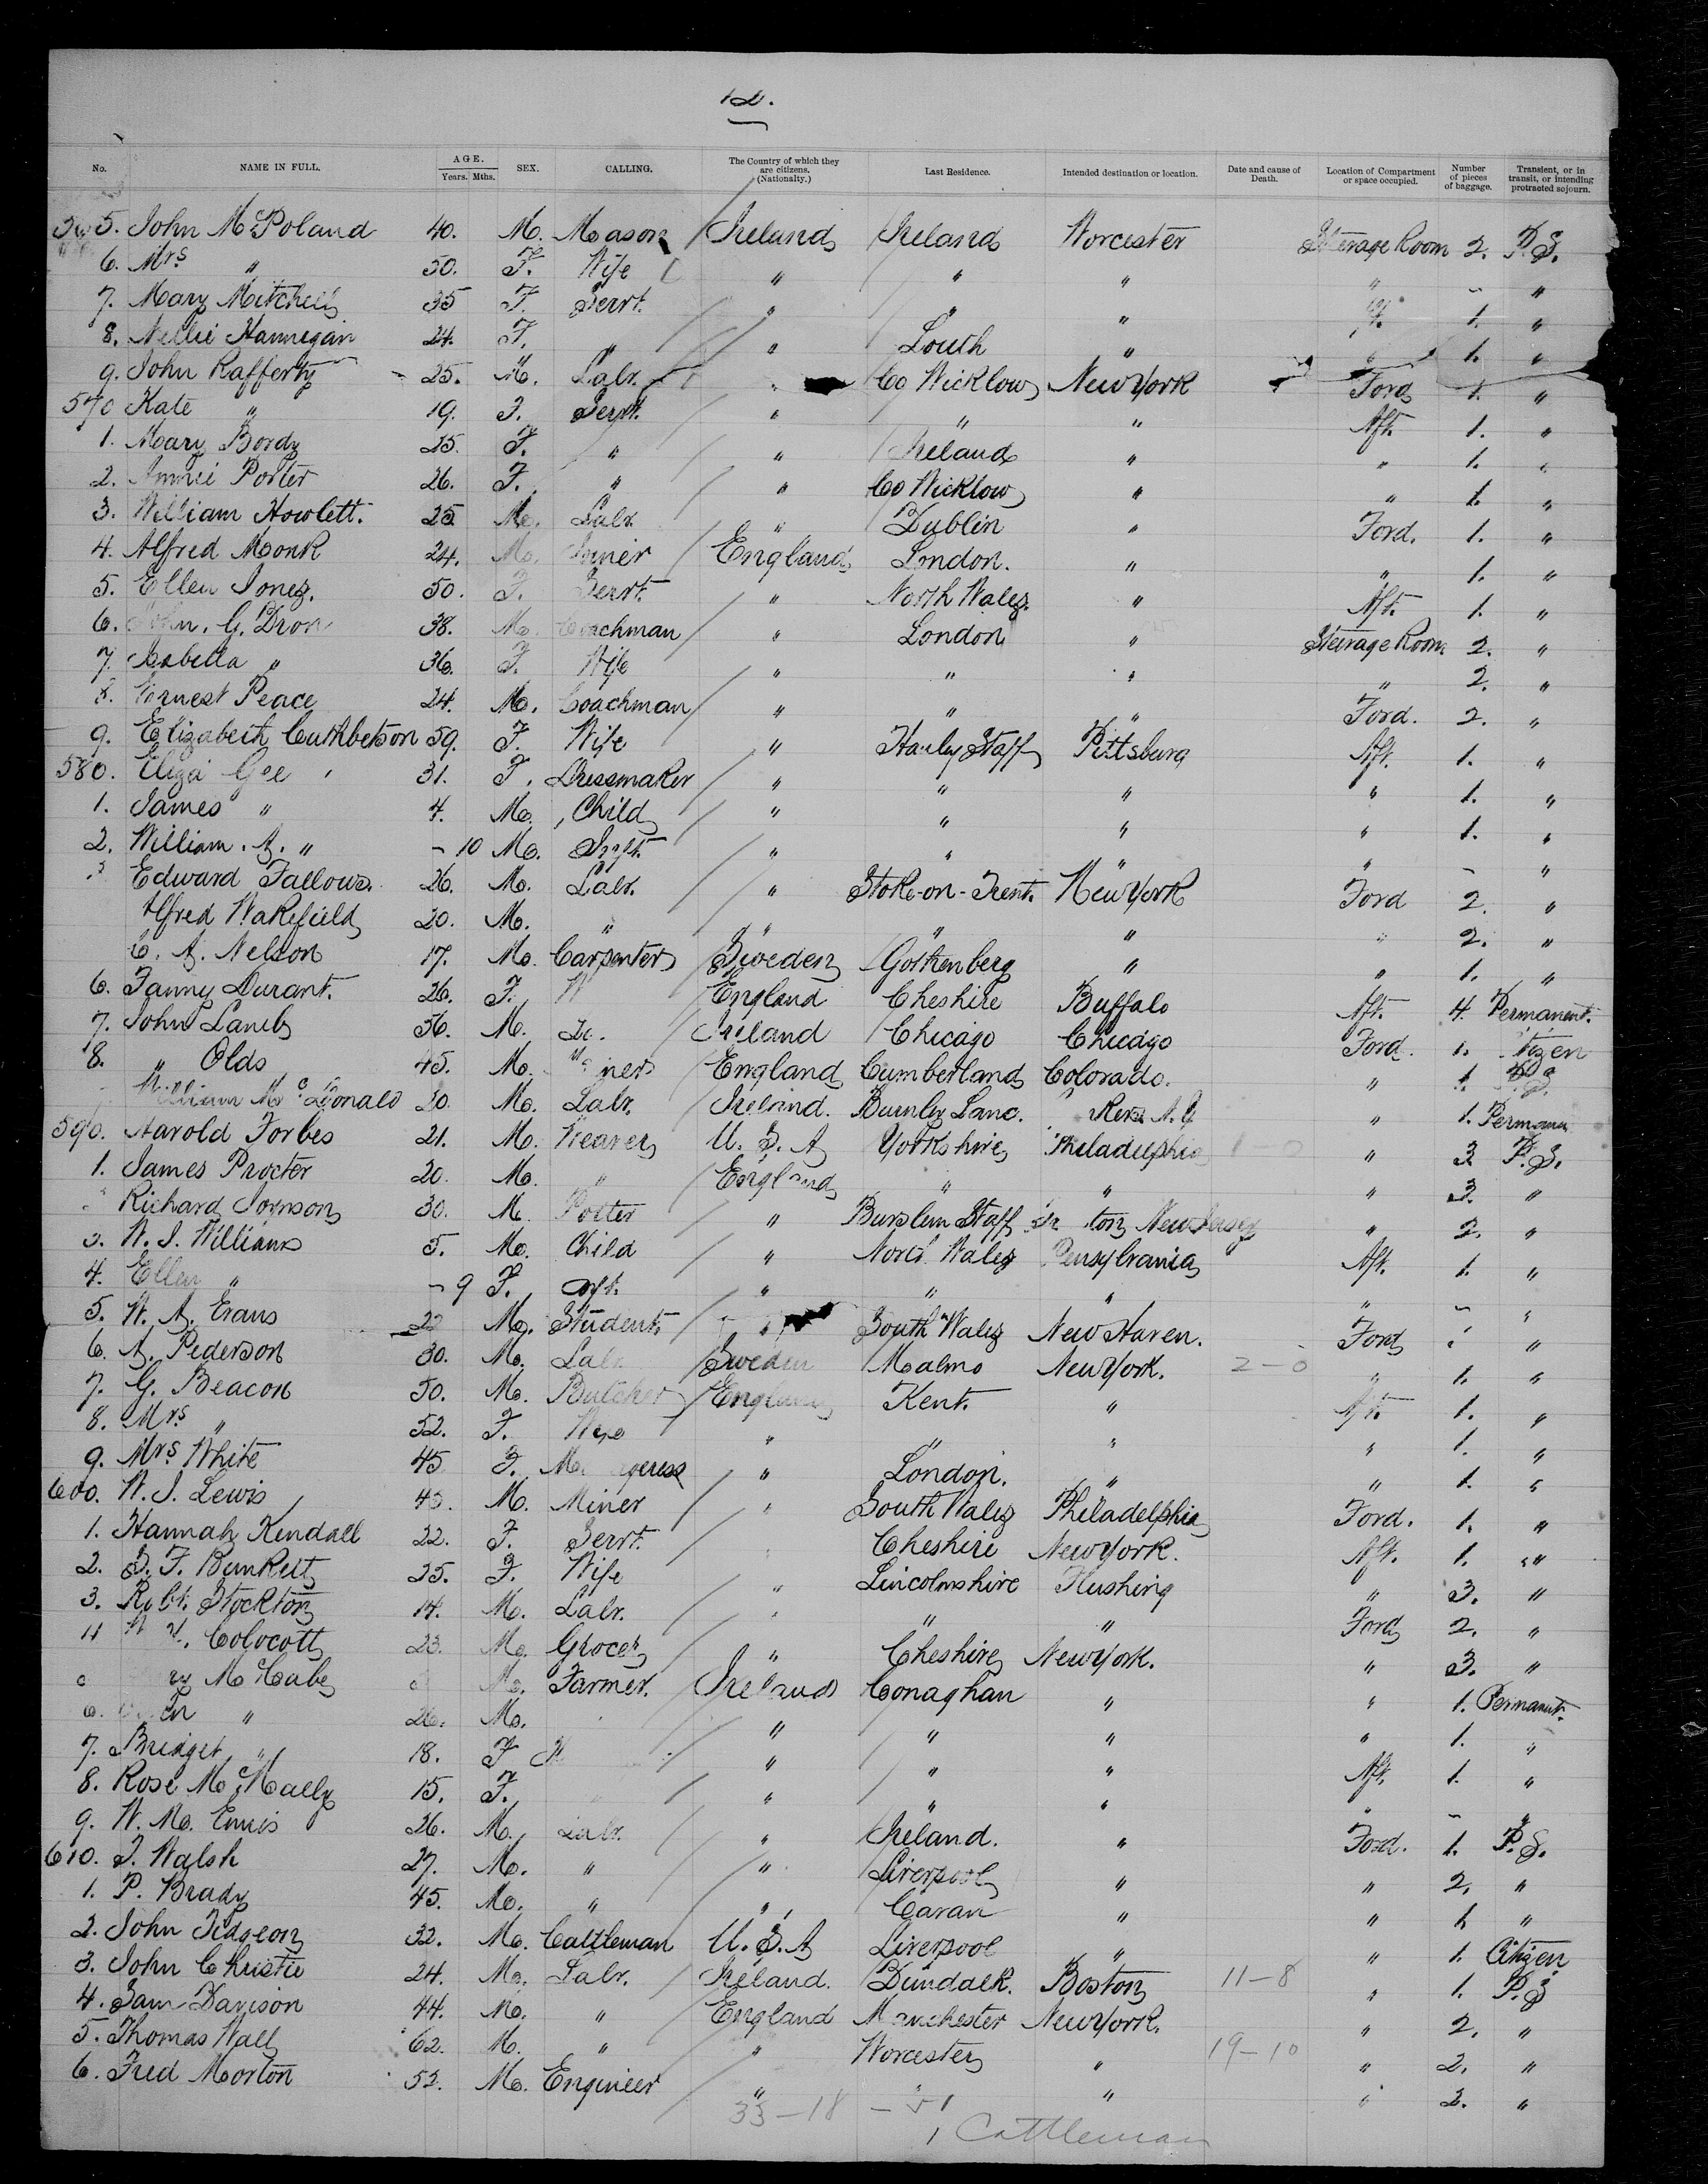 12.
No. NAME IN FULL. AGE. Years. Mths. SEX. CALLING. The Country of which they are citizens. (Nationalty.) Last Residence. Intended destination or location. Date and cause of Death. Location of Compartment or space occupied. Number of pieces of baggage. Transient, or in transit, or intending protracted sojourn.
565. John McPoland 40. M. Mason Ireland Ireland Worcester Steerage Room 2. P.S.
6. Mrs " 50. F. Wife " " " " - "
7. Mary Mitchell 35 F. Servt. " " " 1. "
8. Nellie Hannegan 24. F. " " Louth " " 1. "
9. John Rafferty 25. M. Labr. " Co Wicklow New York Ford 1. "
570 Kate " 19. F. Servt. " " " Aft. 1. "
1. Mary Bordy 25. F. " " Ireland " " 1. "
2. Annie Porter 26. F. " " Co Wicklow " " 1. "
3. William Howlett. 25 M. Labr. " Dublin " Ford. 1. "
4. Alfred Monk 24. M. England London. " " 1. "
5. Ellen Jones. 50. F. Servt. " North Wales. " Aft. 1. "
6. John. G. Dron 38. M. Coachman " London " Steerage Room 2. "
7. Isabella " 36. F. Wife " " " " 2. "
8. Ernest Peace 24. M. Coachman " " " Ford. 2. "
9. Elizabeth Cuthbetson 59. F. Wife " Hanley Staff Pittsburg Aft. 1. "
580. Eliza Gee 31. F. Dressmaker " " " " 1. "
1. James " 4. M. Child " " " " 1. "
2. William. A. " - 10 M. Inft. " " " " - "
3 Edward Fallows. 26. M. Labr. " Stoke-on-Trent. New York Ford 2. "
Alfred Wakefield 20. M. " " " " " 2. "
C. A. Nelson 17. M. Carpenter Sweden Gothenberg " " 1. "
6. Fanny Durant. 26. F. W England Cheshire Buffalo Aft. 4. Permanent.
7. John Lamb 56. M. Ireland Chicago Chicago Ford. 1.
8. " Olds 45. M. England Cumberland Colorado. " 1. P.S.
William McDonald 20. M. Labr. Ireland. Burnley Lanc. " 1. Perman
590. Harold Forbes 21. M. Weaver U.S.A Yorkshire Philadelphia " 3 P.S.
1. James Procter 20. M. " England " " " 3. "
Richard Johnson 30. M. Potter " Burslem Staff New Jersey " 2. "
3. W. J. Williams 5. M. Child " North Wales Pensylvania Aft. 1. "
4. Ellen " - 9 F. " " " " - "
5. W. A. Evans 22 M. Student " South Wales New Haven. Ford "
6. A. Pederson 30. M. Labr. Sweden Malmo New York. 2 - 0 " 1. "
7. G. Beacon 50. M. Butcher England Kent. " Aft. 1. "
8. Mrs " 52. F. Wife " " " " 1. "
9. Mrs White 45 F. " London. " " 1. "
600. W. J. Lewis 45. M. Miner " South Wales Philadelphia Ford. 1. "
1. Hannah Kendall 22. F. Servt. " Cheshire New York. Aft. 1. "
2. S. F. Bunkett 25. F. Wife " Lincolnshire Flushing " 3. "
3. Robt. Stockton 14. M. Labr. " " " Ford 2. "
4 Colocott 23. M. Grocer " Cheshire New York. " 3. "
McCabe M. Farmer. Ireland Conaghan " " 1. Permanent.
6. " 26. M. " " " " 1. "
7. Bridget " 18. F " " " Aft. 1. "
8. Rose McNally 15. F. " " " " - "
9. W. M. Ennis 26. M. Labr. " Ireland. " Ford. 1. P.S.
610. J. Walsh 27. M. " " Liverpool " " 2. "
1. P. Brady 45. M. " " Cavan " " 1. "
2. John Tidgeon 32. M. Cattleman U.S.A Liverpool " " 1. Citizen
3. John Christie 24. M. Labr. Ireland. Dundalk. Boston 11-8 " 1. P.S
4. Sam Davison 44. M. " England Manchester New York. " 2. "
5. Thomas Wall 62. M. " " Worcester " 19-10 " 2. "
6. Fred Morton 52. M. Engineer " " " " 2. "
33-18
1 Cattleman